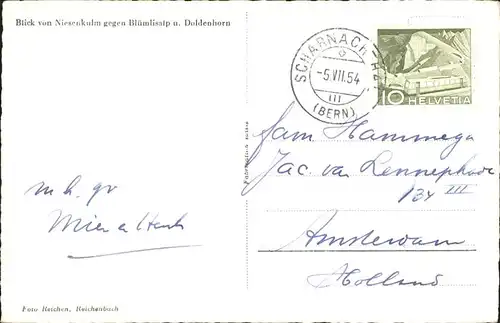 Blick von Niesenkulm gegen Blümlisalp u. Doldenhorn
SCHARNACHTAL
-5.VII.54
III
(BERN)
10 HELVETIA
Fam Hammega
Jac. van Lennepkade
134 III
Amsterdam
Holland
m. h. gr
Mien a Henk
Foto Reichen, Reichenbach